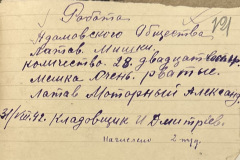 Работа 121
Адамовского Общества
Латав Мишки.
количество 28. двадцат восем.
мешка очень рватые.
Латав Моторный Александ
31/VIII 42. Кладовщик И Дмитриев.
Начислено 2 труд.